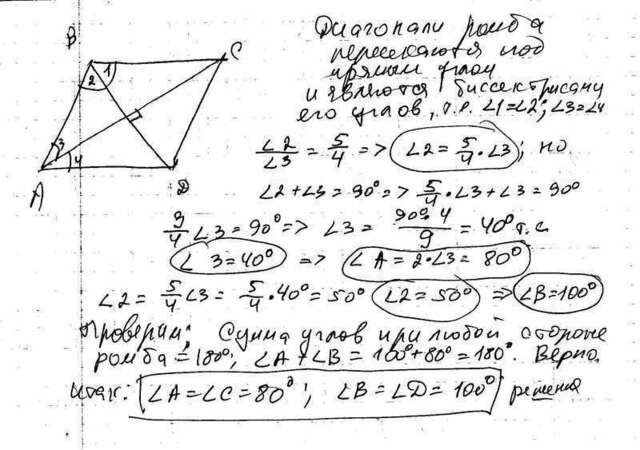 B
C
2
1
3
4
A
D
Диагонали ромба
пересекаются под
прямым углом
и являются биссектрисами
его углов, т.е. ∠1=∠2; ∠3=∠4
∠2/∠3 = 5/4 => ∠2 = 5/4·∠3; но
∠2+∠3=90° => 5/4·∠3+∠3=90°
9/4 ∠3=90° => ∠3 = 90°·4/9 = 40° т.е.
∠3=40° => ∠A=2·∠3=80°
∠2 = 5/4∠3 = 5/4·40°=50° ∠2=50° => ∠B=100°
Проверим: Сумма углов при любой стороне
ромба =180°; ∠A+∠B = 100°+80°=180°. Верно.
Итак: ∠A=∠C=80°; ∠B=∠D=100°